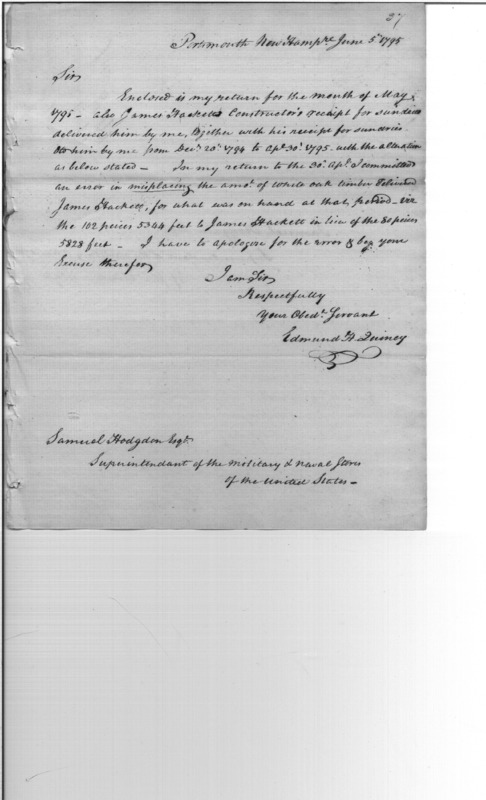 37
Portsmouth New Hampre June 5th 1795
Sir
Enclosed is my return for the month of May
1795 - also James Hacketts Constructor's receipt for sundries
delivered him by me, together with his receipt for sundries
him by me from Decr 20th 1794 to apl 30th 1795. with the alteration
as below stated - In my return to the 30th apl I committed
an error in misplacing the amot of White oak timber delivered
James Hackett, for what was on hand at that period - viz
the 102 pieces 5344 feet to James Hackett in lieu of the 80 pieces
5828 feet - I have to apologise for the error & beg your
Excuse therefor
I am Sir
Respectfully
Your Obedt Servant
Edmund H Quincy
Samuel Hodgdon Esqr
Superintendant of the military & naval Stores
of the United States -